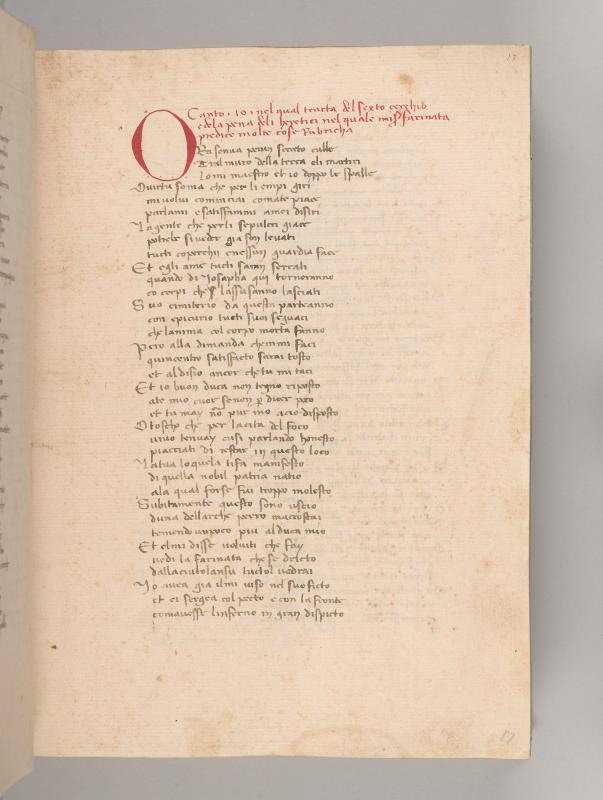 17
Canto .10. nel qual tracta del sexto cerchio
e dela pena deli heretici nel quale miss farinata
predice molte cose Rubricha
ORa senva per un secreto calle
Tral muro della terra eli martiri
lo mi maestro et io doppo le spalle
O virtu soma che per li empi giri
mi volvi cominciai comate piace
parlami e satisfammi amei disiri
La gente che perli sepulcri giace
potrebesi veder gia son levati
tucti coperchi e nessun guardia face
Et egli ame tucti saran sercati
quando di Josapha qui torneranno
co corpi che lassusanno lasciati
Suo cimiterio da questa parteanno
con epicurio tucti suoi sequaci
che lanima col corpo morta fanno
Pero alla dimanda chemmi faci
quincentro satisfacto serai tosto
et al disio ancor che tu mi taci
Et io buon duca non tegno riposto
ate mio cuor senon p dicer poco
et tu may no pur mo acio disposto
O toscho che per lacita del foco
vivo tenvay cusi parlando honesto
piacciati di restar in questo loco
La tua loquela tifa manifesto
di quella nobil patria natio
ala qual forse fui troppo molesto
Subitamente questo sono uscio
duna dellarche perro maccostai
temendo unpoco piu alduca mio
Et elmi disse volviti che fay
vedi la farinata che se derito
dallacintolansu tuctol vedrai
Jo avea gia ilmi viso nel suo ficto
et ei sergea col pecto e con la fronte
comavesse linferno in gran dispicto
17